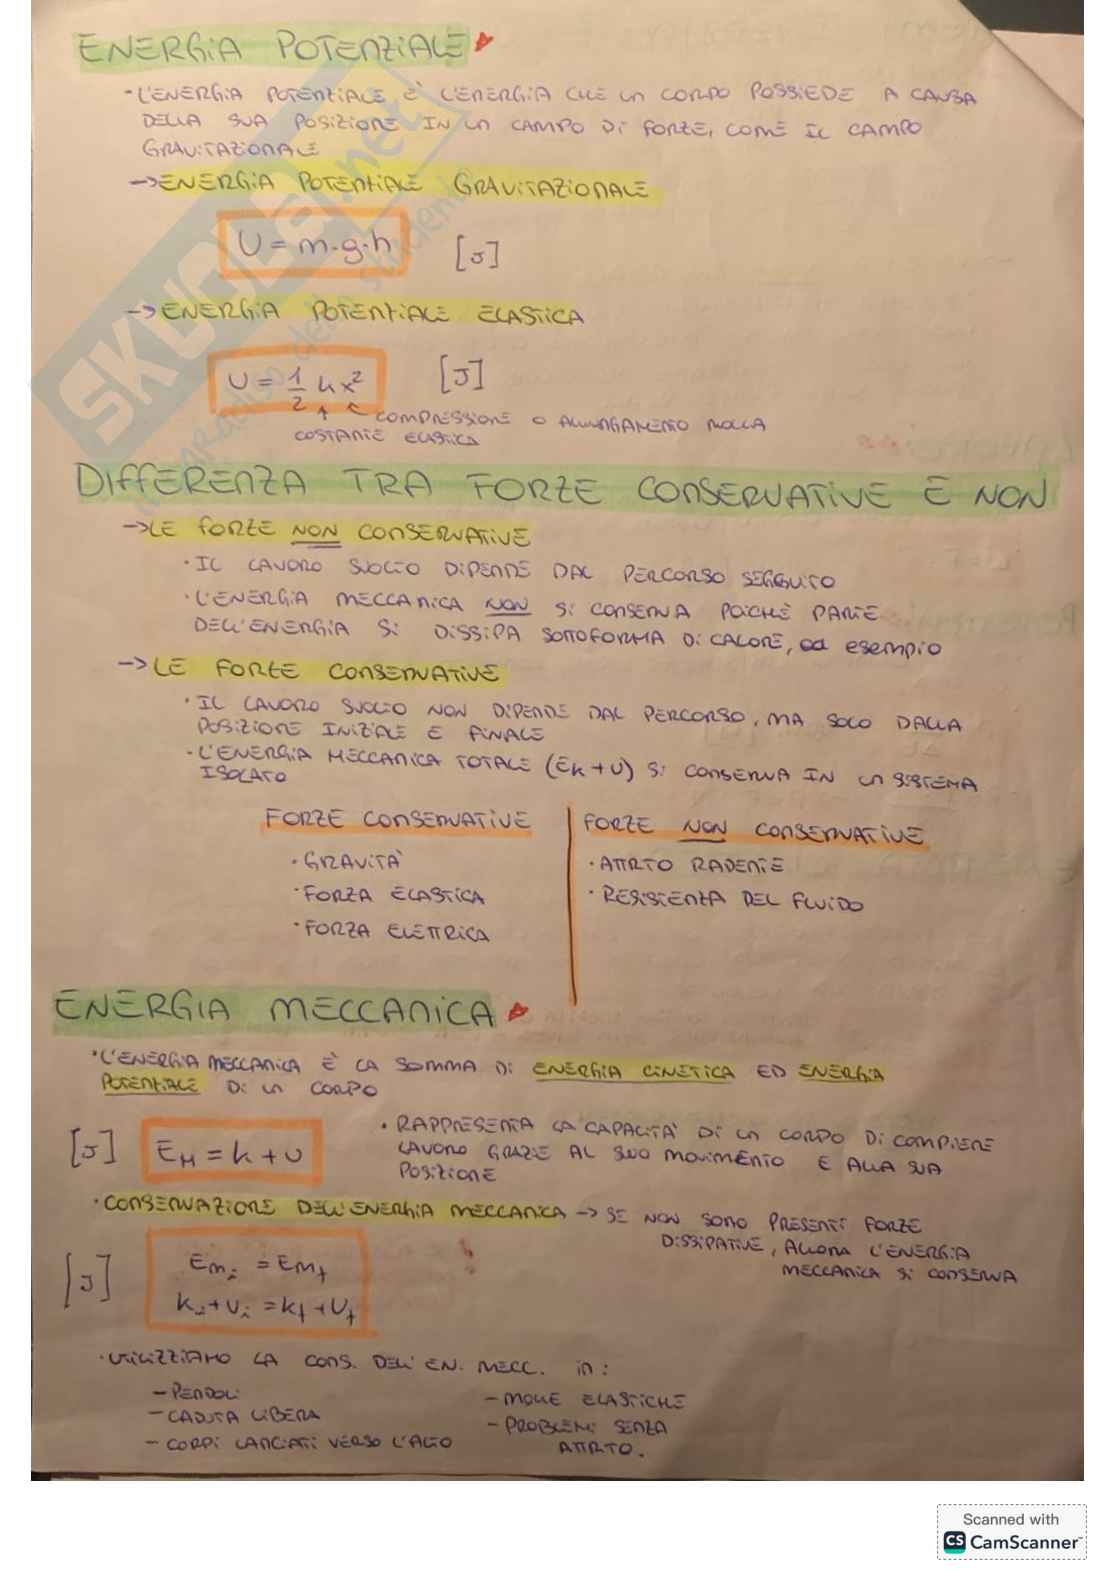 ENERGIA POTENZIALE
• L'ENERGIA POTENZIALE È L'ENERGIA CHE UN CORPO POSSIEDE A CAUSA
DELLA SUA POSIZIONE IN UN CAMPO DI FORZE, COME IL CAMPO
GRAVITAZIONALE
→ ENERGIA POTENZIALE GRAVITAZIONALE
U = m·g·h [J]
→ ENERGIA POTENZIALE ELASTICA
U = 1/2 k x² [J]
COMPRESSIONE O ALLUNGAMENTO MOLLA
COSTANTE ELASTICA
DIFFERENZA TRA FORZE CONSERVATIVE E NON
→ LE FORZE NON CONSERVATIVE
• IL LAVORO SVOLTO DIPENDE DAL PERCORSO SEGGUITO
• L'ENERGIA MECCANICA NON SI CONSERVA POICHÈ PARTE
DELL'ENERGIA SI DISSIPA SOTTOFORMA DI CALORE, ad esempio
→ LE FORZE CONSERVATIVE
• IL LAVORO SVOLTO NON DIPENDE DAL PERCORSO, MA SOLO DALLA
POSIZIONE INIZIALE E FINALE
• L'ENERGIA MECCANICA TOTALE (Ek + U) SI CONSERVA IN UN SISTEMA
ISOLATO
FORZE CONSERVATIVE
• GRAVITÀ
• FORZA ELASTICA
• FORZA ELETTRICA
FORZE NON CONSERVATIVE
• ATTRTO RADENTE
• RESISTENZA DEL FLUIDO
ENERGIA MECCANICA
• L'ENERGIA MECCANICA È LA SOMMA DI ENERGIA CINETICA ED ENERGIA
POTENZIALE DI UN CORPO
[J] EM = k + U
• RAPPRESENTA LA CAPACITÀ DI UN CORPO DI COMPIERE
LAVORO GRAZIE AL SUO MOVIMENTO E ALLA SUA
POSIZIONE
• CONSERVAZIONE DELL'ENERGIA MECCANICA → SE NON SONO PRESENTI FORZE
DISSIPATIVE, ALLORA L'ENERGIA
MECCANICA SI CONSERVA
[J] Emi = Emf
ki + Ui = kf + Uf
• UTILIZZIAMO LA CONS. DELL'EN. MECC. in:
- PENDOLI
- CADUTA LIBERA
- CORPI LANCIATI VERSO L'ALTO
- MOLLE ELASTICHE
- PROBLEMI SENZA
ATTRTO.
SKUOLA.net
Scanned with
CS CamScanner